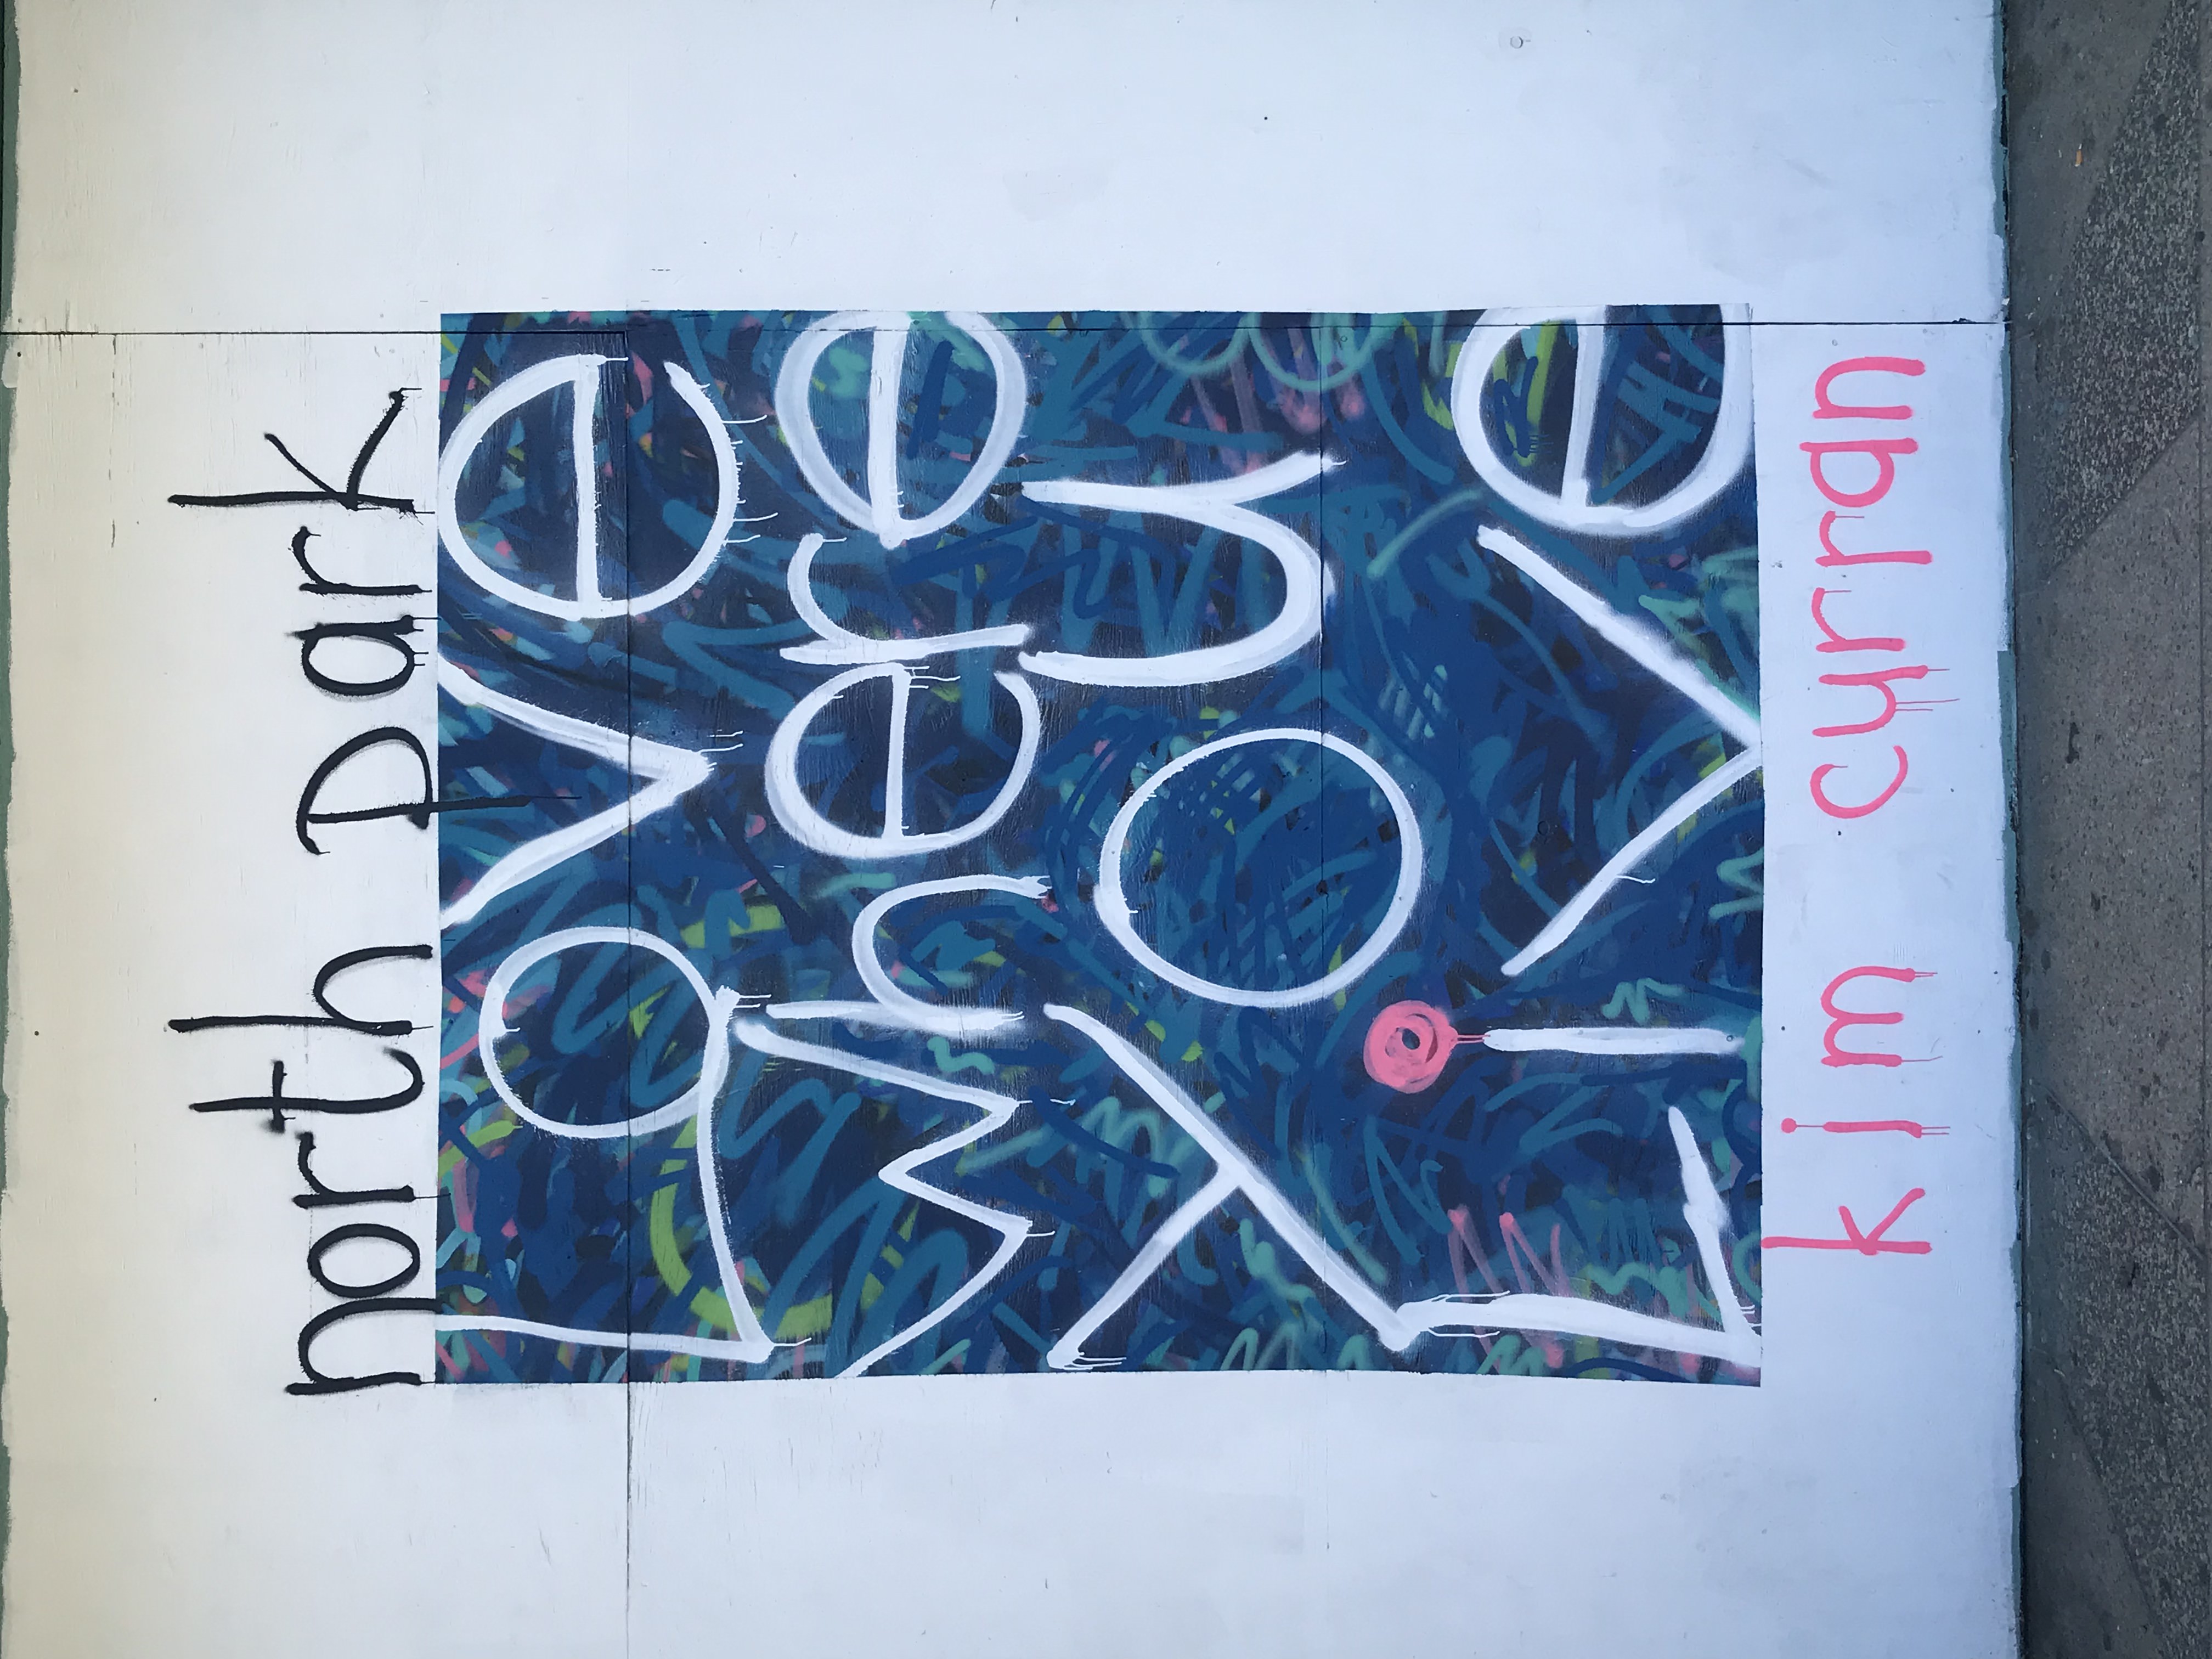 north park
Love
where
you
Live
kim curran